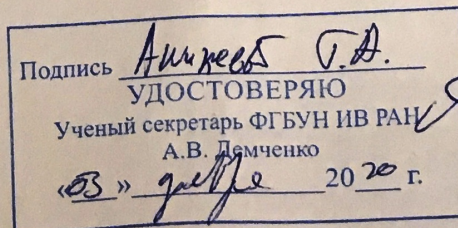 Подпись Аникеев Г.А.
УДОСТОВЕРЯЮ
Ученый секретарь ФГБУН ИВ РАН
А.В. Демченко
«03» 2020 г.